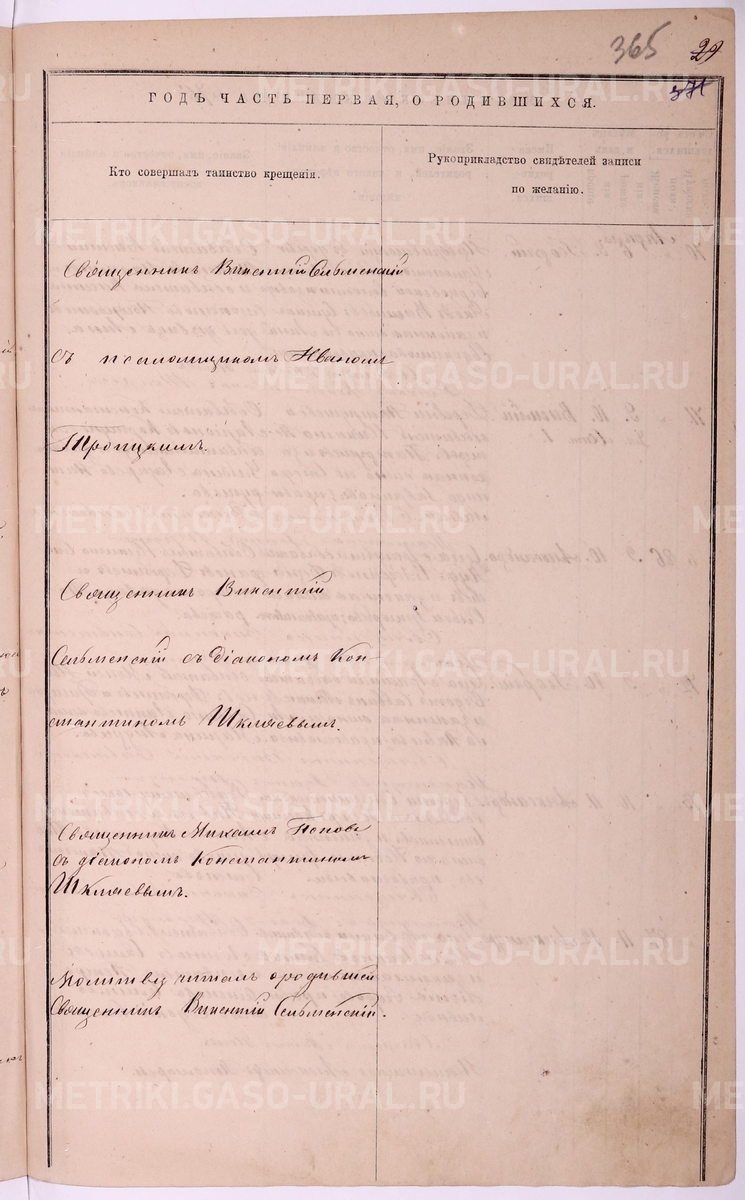 365 29
371
ГОДЪ ЧАСТЬ ПЕРВАЯ, О РОДИВШИХСЯ.
Кто совершалъ таинство крещенія.
Рукоприкладство свидѣтелей записи
по желанію.
Священникъ Викентій Сельменскій
съ псаломщикомъ Иваномъ
Троицкимъ.
Священникъ Викентій
Сельменскій съ діакономъ Кон-
стантиномъ Шкляевымъ.
Священникъ Михаилъ Поповъ
съ діакономъ Константиномъ
Шкляевымъ.
Молитву читалъ о родившей
Священникъ Викентій Сельменскій.
METRIKI.GASO-URAL.RU